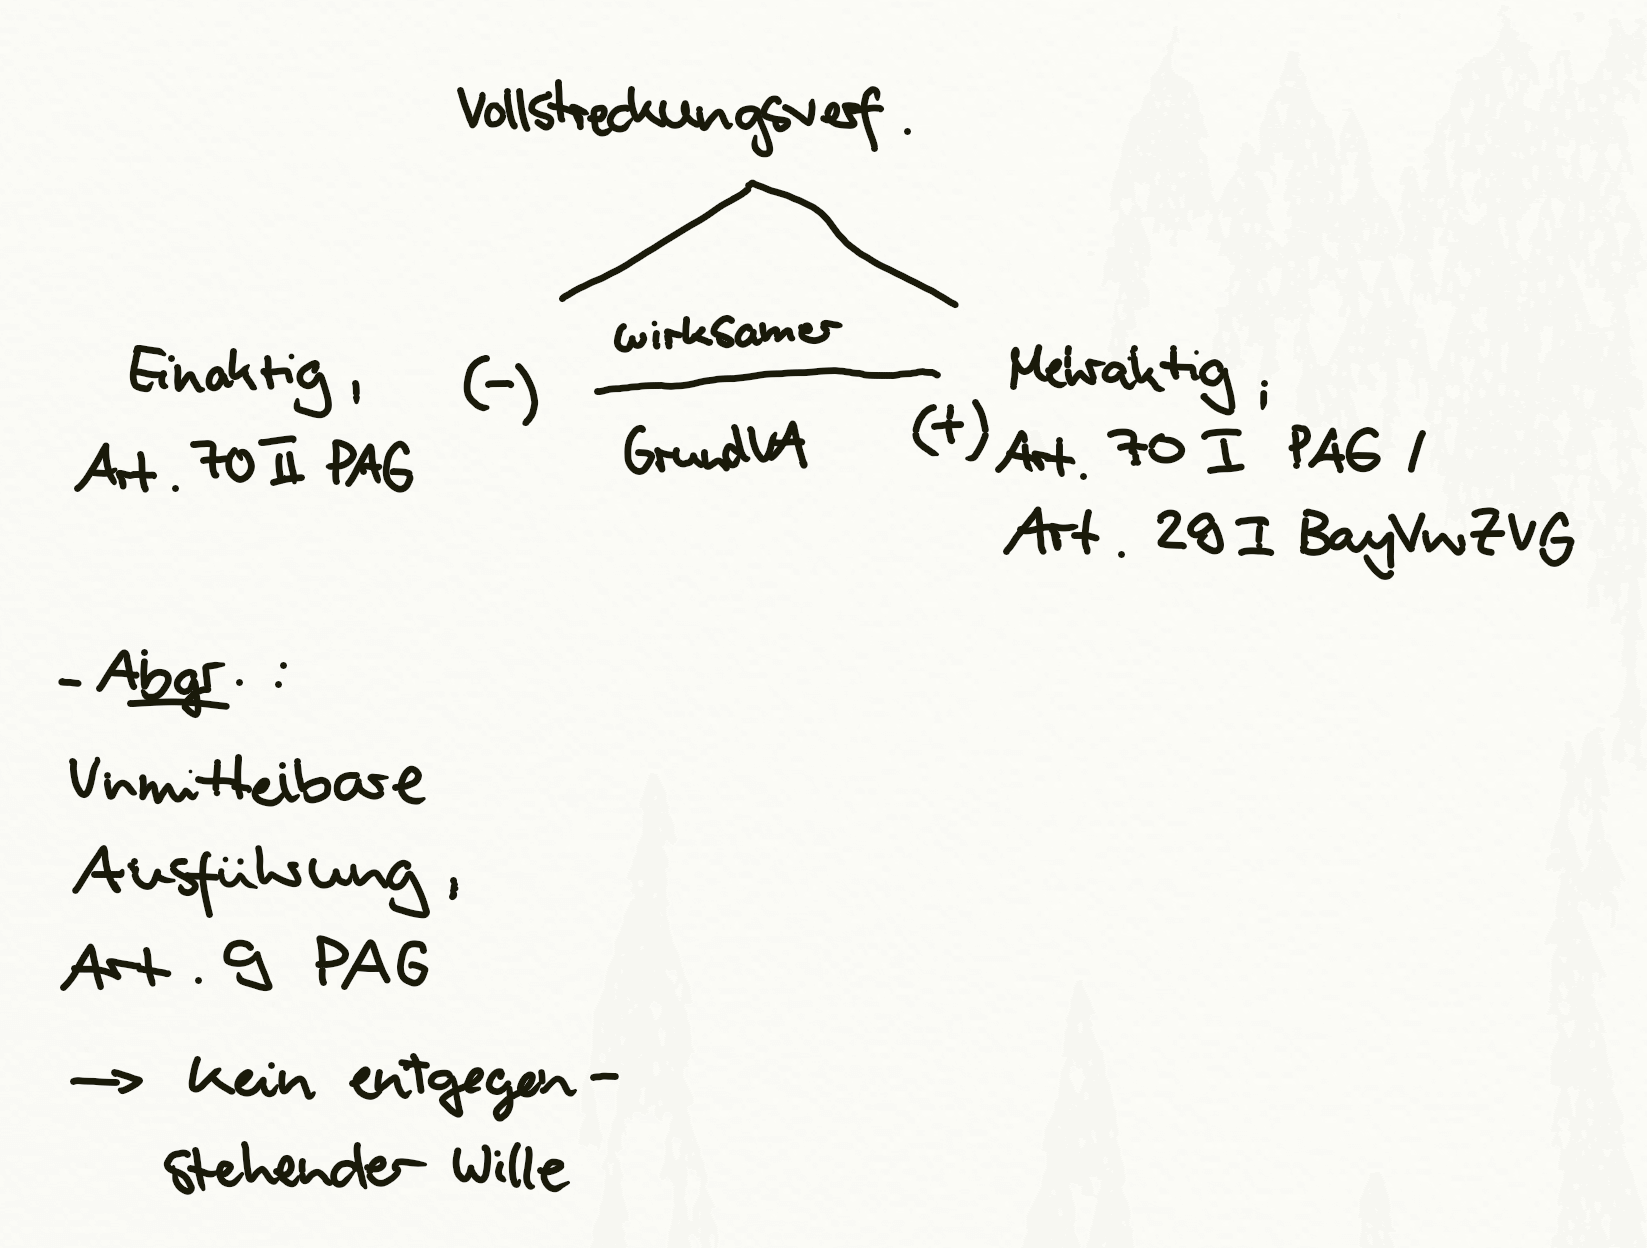 Vollstreckungsverf.
Einaktig, (-) wirksamer Mehraktig,
Art. 70 II PAG GrundVA (+) Art. 70 I PAG /
Art. 29 I BayVwZVG
- Abgr. :
Unmittelbare
Ausführung,
Art. 9 PAG
→ Kein entgegen-
stehender Wille